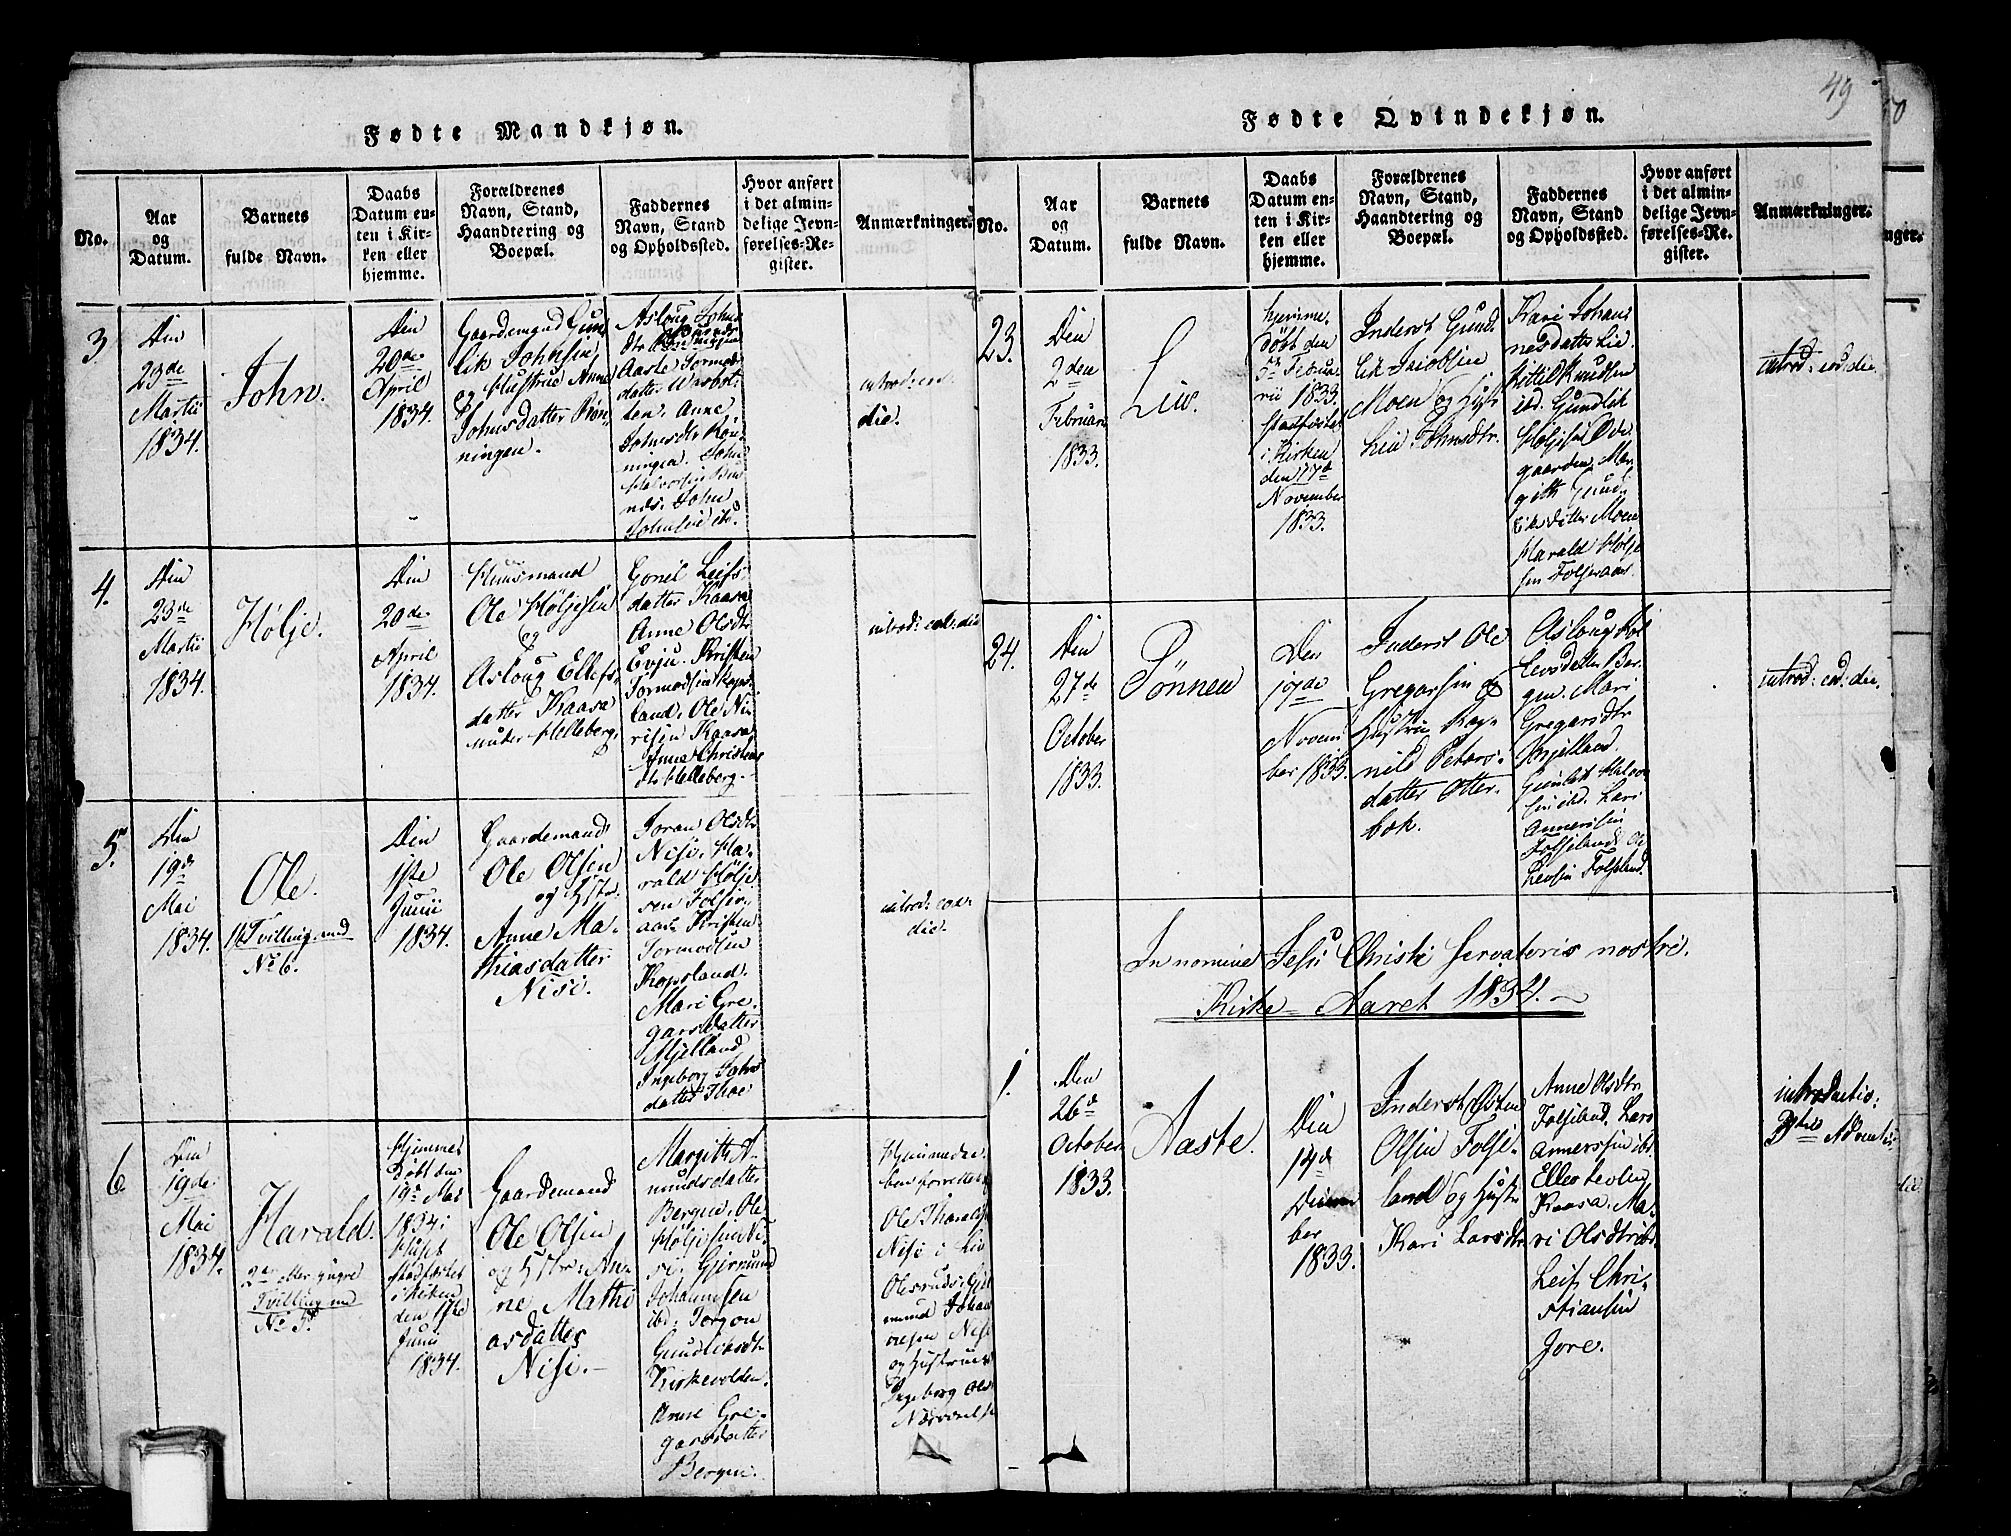 49
Fødte Mandkjøn.
No.
Aar
og
Datum.
Barnets
fulde Navn.
Daabs
Datum en-
ten i Kir-
ken eller
hjemme.
Forældrenes
Navn, Stand,
Haandtering og
Boepæl.
Faddernes
Navn, Stand
og Opholdssted.
Hvor anført
i det almin-
delige Jevn-
førelses-Re-
gister.
Anmærkninger.
3.
Den
23de
Martii
1834.
John.
Den
20de
April
1834.
Gaardemand Gun
lik Johnsen,
og Hustrue Anne
Johnsdatter Røn-
ningen.
Asloug Johns
Aasle Tormods
datter
Anne
Johnsdtr Røn-
ningen. John
Halvorsen
John
Johnsen ibd.
introd: eod:
die.
4.
Den
23de
Martii
1834.
Hølje.
Den
20de
April
1834.
Huusmand
Ole Høljesen
og
Asloug Ellefs-
datter Kaasa
under Helleberg.
Gonil Leifs-
datter Kaasa
Anne Olsdtr
Evju. Kristen
Tormodsen Kops-
land. Ole Ni-
risen Kaasa
Anne Christens
dtr Helleberg.
introd: eod: die
5.
Den
19de
Mai
1834.
Ole.
1ste Tvilling, md
No 6.
Den
1ste
Junii
1834.
Gaardemand
Ole Olsen
og Hstr
Anne Ma-
thiasdatter
Nisi.
Joran Olsdtr
Nisi. Ha-
rald Hølje
sen Folser-
aas. Kristen
Tormodsen
Kopsland.
Mari Gre-
garsdatter
Mjelland
Ingeborg Johns
datter Thoe
introd: eod:
die.
6.
Den
19de
Mai
1834.
Harald.
2den eller yngre
Tvilling, md
No 5.
Hjemme
døbt den
19de Mai
1834 i
Huset
stadfæstet
i Kirken
den 1ste
Junii
1834.
Gaardemand
Ole Olsen
og Hstr: An-
ne Mathi
asdatter
Nisi.
Margith A-
mundsdatter
Bergen. Ole
Høljesen Ni-
si. Gjermund
Johannesen
ibd. Torgon
Gundleiksdtr
Kirkevolden.
Anne Gre-
garsdatter
Bergen.
Hjemmedaa-
ben forrettet af
Ole Haralds
Nisi i Liv
Olsruds. Gjer
mund Johan
nesen Nisi
og Hustrues
Ingeborg Ols
Nærværelse
Fødte Qvindekjøn.
No.
Aar
og
Datum.
Barnets
fulde Navn.
Daabs
Datum en-
ten i Kir-
ken eller
hjemme.
Forældrenes
Navn, Stand,
Haandtering og
Boepæl.
Faddernes
Navn, Stand
og Opholdsted.
Hvor anført
i det almin-
delige Jevn-
førelses-Re-
gister.
Anmærkninger.
23.
Den
2den
Februar
1833.
Liv.
hjemme-
døbt den
5te Februa-
rii 1833.
stadfæstet
i Kirken
den 17de
November
1833.
Inderst Gund
lik Jacobsen
Moen og Hust
Liv Johnsdtr.
Kari Johan
nesdatter Lie
Kittil Knudsen
ibd. Gundlik
Høljesen Øde
gaarden. Mar
gith Gund-
liksdatter Moen
Harald Hølje
sen Folseraas.
introd: eod: die.
24.
Den
27de
October
1833.
Tønnen
Den
17de
Novem
ber 1833.
Inderst Ole
Gregarsen og
Hustrue Rag-
nild Peters-
datter Otter-
bek.
Asloug Tol
levsdatter Ber
gen. Mari
Gregarsdtr
Mjelland.
Gunlik Halvor
sen ibd. Lars
Annerssen
Folseland. Ole
Levsen Folseland.
introd: eod: die.
In nomine Jesu Christi servatoris nostri.
Kirke-Aaret 1834.
1.
Den
26de
October
1833.
Aaste.
Den
14de
Decem
ber
1833.
Inderst Østen
Olsen Folse-
land og Hustr
Kari Larsdtr
Anne Olsdtr
Folseland. Lars
Annerssen ibd.
Ellev Levsen
Kaasa. Ma-
ri Olsdtr ibd.
Leif Chri-
stiansen
Jore.
introductio:
3die Advents